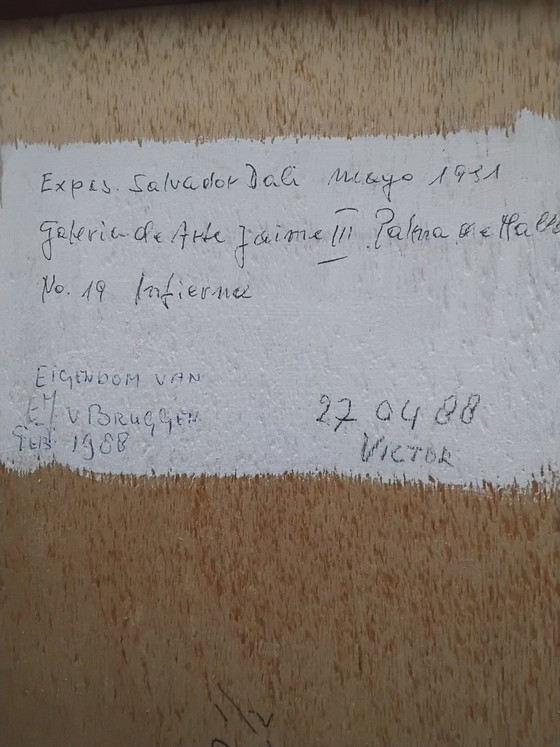 Expos. Salvador Dali mayo 1951
Galeria de Arte Jaime III. Palma de Mall
No. 19 Infierno
EIGENDOM VAN
V BRUGGEN
27 04 88
1988
VICTOR
1/2